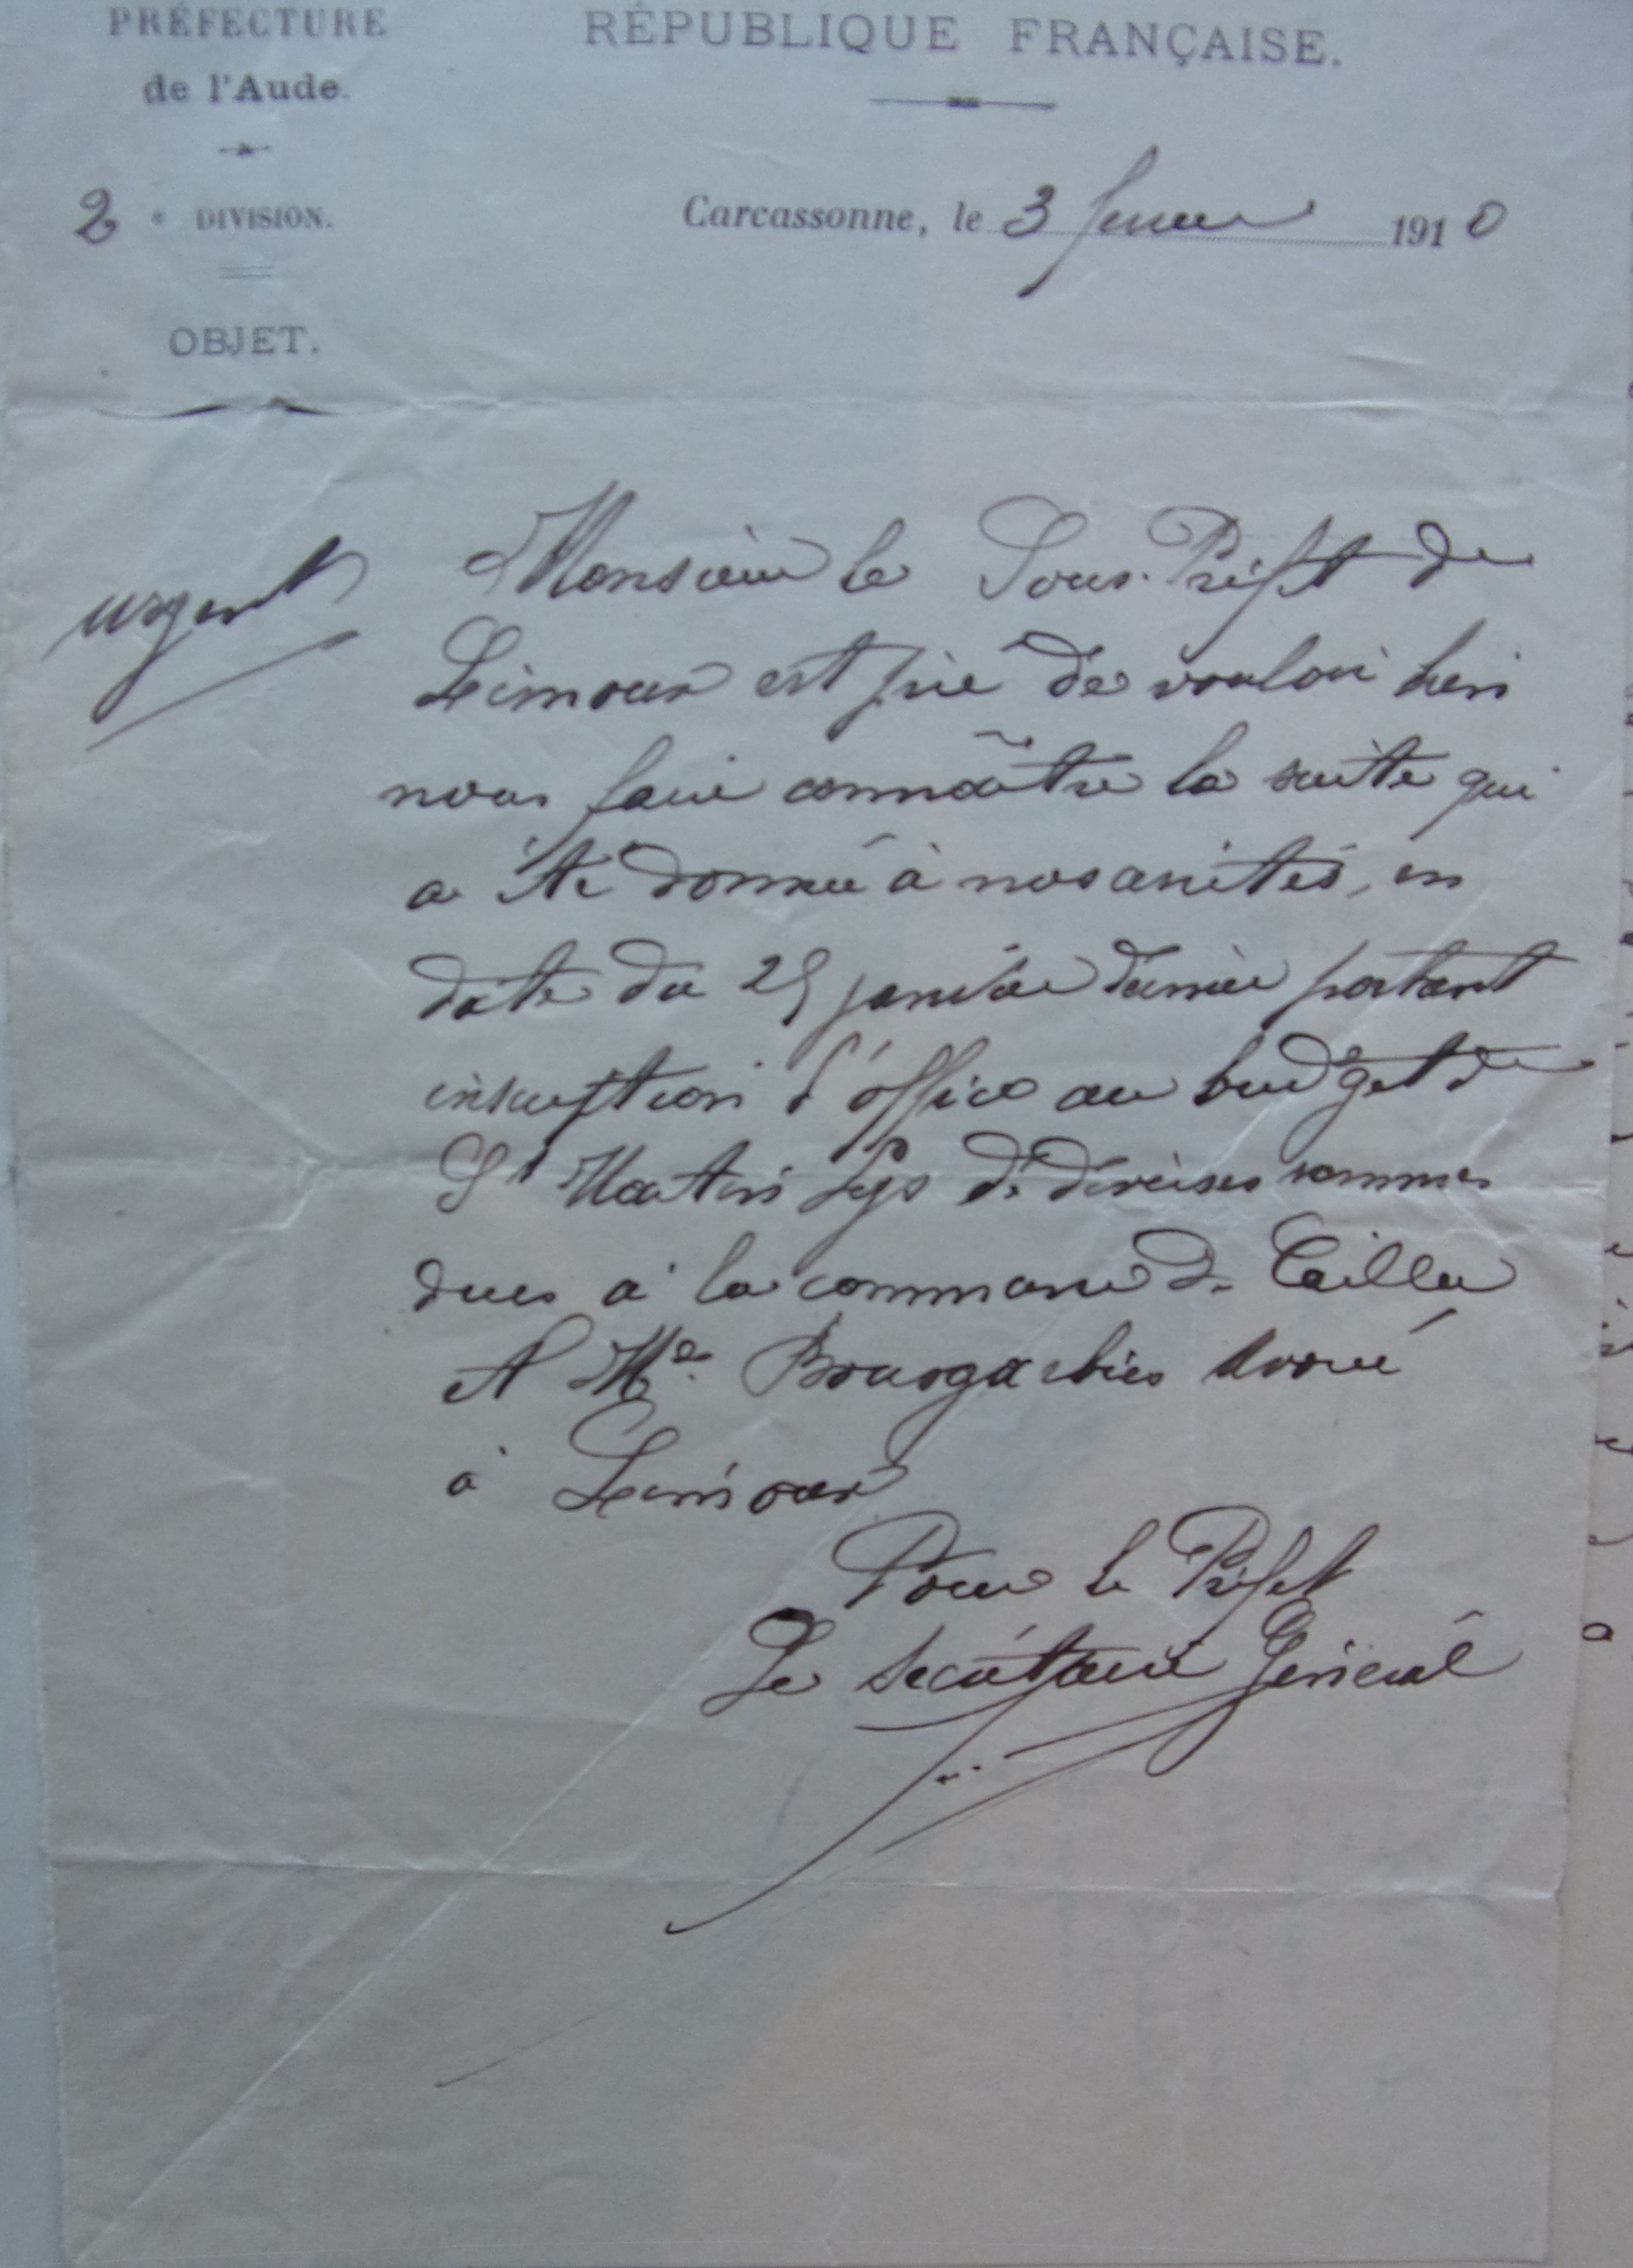 PRÉFECTURE
de l'Aude.
RÉPUBLIQUE FRANÇAISE.
2e DIVISION.
Carcassonne, le 3 fevrier 1910
OBJET.
urgent
Monsieur le Sous-Préfet de
Limoux est prié de vouloir bien
nous faire connaître la suite qui
a été donnée à nos arrêtés, en
date du 25 janvier dernier portant
inscription d'office au budget de
St Martin Lys de diverses sommes
dues à la commune de Cailla
et Me Bourgarbiès avoué
à Limoux
Pour le Préfet
Le Secrétaire Général